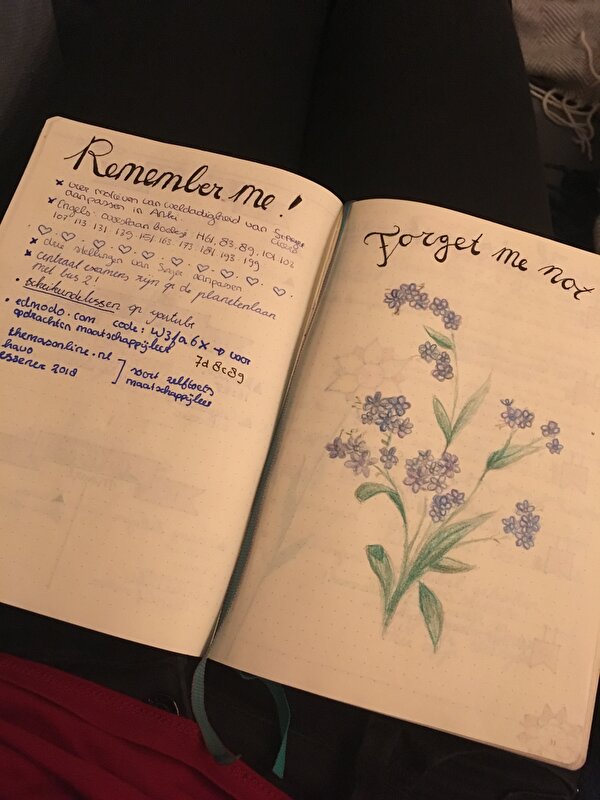 Remember me!
x vier motieven van weldadigheid van
aanpassen in
x Engels: overslaan boekje H61, 83, 89, 101, 102
107 113 131 139 151 163 173 181 193 199
x drie stellingen van aanpassen
x centraal examens zijn op de planetenlaan
met bus 2!
• scheikundelessen op youtube
• edmodo.com code: w3fa6x → voor
opdrachten maatschappijleer
7d8c8g
themasonline.nl
havo
essener 2018 ] soort zelftoets
maatschappijleer
Forget me not